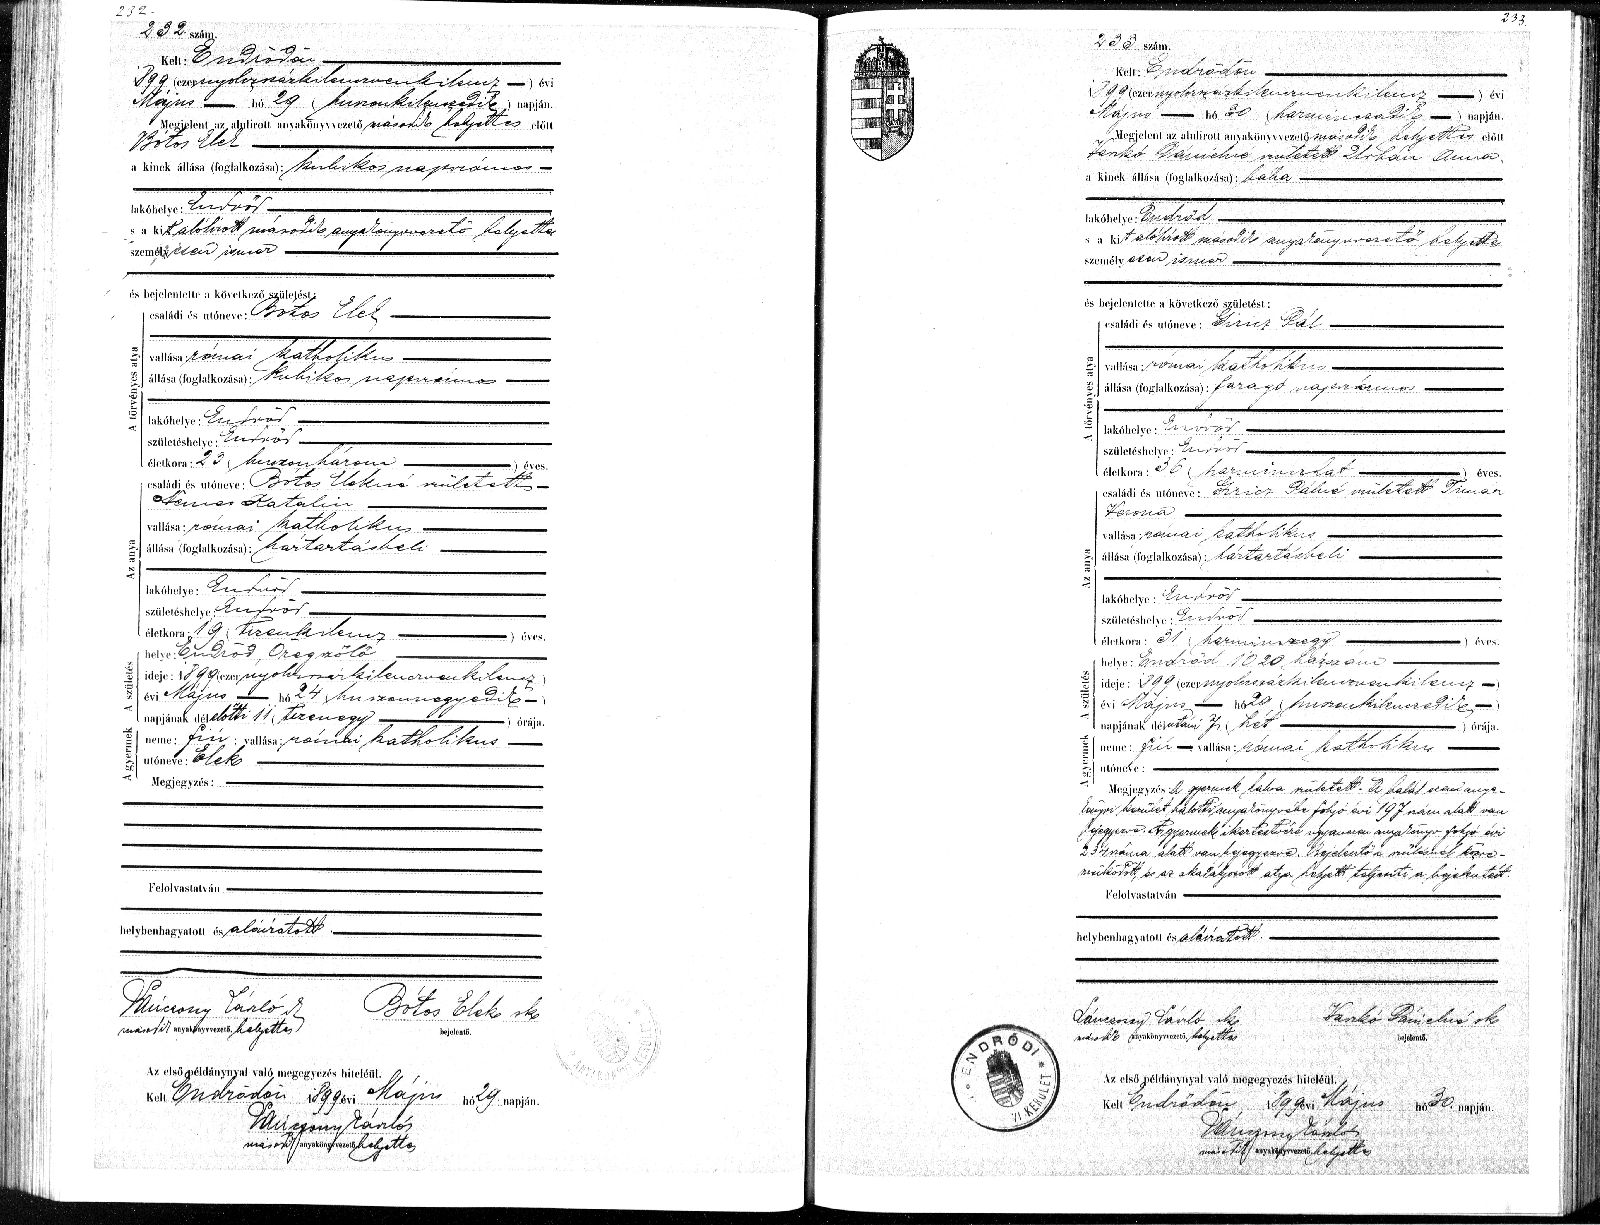 232.
232 szám.
Kelt: Endrődön
1899 (ezernyolczszázkilenczvenkilencz ) évi
Május hó 29 (huszonkilenczedik) napján.
Megjelent az alulirott anyakönyvvezető második helyettes előtt
Bótos Elek
a kinek állása (foglalkozása): kubikos napszámos
lakóhelye: Endrőd
s a kit alólirott második anyakönyvvezető helyettes
személyesen ismer
és bejelentette a következő születést:
A törvényes atya
családi és utóneve: Bótos Elek
vallása: római katholikus
állása (foglalkozása): kubikos napszámos
lakóhelye: Endrőd
születéshelye: Endrőd
életkora: 23 (huszonhárom ) éves.
Az anya
családi és utóneve: Bótos Elekné született
Nemes Katalin
vallása: római katholikus
állása (foglalkozása): háztartásbeli
lakóhelye: Endrőd
születéshelye: Endrőd
életkora: 19 (tizenkilencz ) éves.
A születés
helye: Endrőd, Öregszőlő
ideje: 1899 (ezernyolczszázkilenczvenkilencz)
évi Május hó 24 (huszonnegyedik )
napjának délelőtti 11 (tizenegy ) órája.
A gyermek
neme: fiú; vallása: római katholikus
utóneve: Elek
Megjegyzés:
Felolvastatván
helybenhagyatott és aláiratott
László sk
második anyakönyvvezető, helyettes
Bótos Elek sk
bejelentő.
Az első példánynyal való megegyezés hiteléül.
Kelt Endrődön 1899 évi Május hó 29 napján.
László
második anyakönyvvezető helyettes
233.
233 szám.
Kelt: Endrődön
1899 (ezernyolczszázkilenczvenkilencz ) évi
Május hó 30 (harminczadik ) napján.
Megjelent az alulirott anyakönyvvezető második helyettes előtt
Jankó Dánielné született Urbán Anna
a kinek állása (foglalkozása): bába
lakóhelye: Endrőd
s a kit alólirott második anyakönyvvezető helyettes
személyesen ismer
és bejelentette a következő születést:
A törvényes atya
családi és utóneve: Giricz Pál
vallása: római katholikus
állása (foglalkozása): faragó napszámos
lakóhelye: Endrőd
születéshelye: Endrőd
életkora: 36 (harminczhat ) éves.
Az anya
családi és utóneve: Giricz Pálné született Timár
Verona
vallása: római katholikus
állása (foglalkozása): háztartásbeli
lakóhelye: Endrőd
születéshelye: Endrőd
életkora: 31 (harminczegy ) éves.
A születés
helye: Endrőd 1020. házszám
ideje: 1899 (ezernyolczszázkilenczvenkilencz )
évi Május hó 29 (huszonkilenczedik )
napjának délutáni 7 (hét ) órája.
A gyermek
neme: fiú; vallása: római katholikus
utóneve:
Megjegyzés A gyermek halva született. A halál ezen anya-
könyvi kerület halotti anyakönyvébe folyó évi 197 szám alatt van
bejegyezve. A gyermek ikertestvére ugyanezen anyakönyv folyó évi
234 száma alatt van bejegyezve. Bejelentő a szülésnél közre-
működött, és az akadályozott atya helyett teljesiti a bejelentést
Felolvastatván
helybenhagyatott és aláiratott.
László sk
második anyakönyvvezető, helyettes
Jankó Dánielné sk
bejelentő.
ENDRŐDI
VI. KERÜLET
Az első példánynyal való megegyezés hiteléül.
Kelt Endrődön 1899 évi Május hó 30 napján.
László
második anyakönyvvezető, helyettes